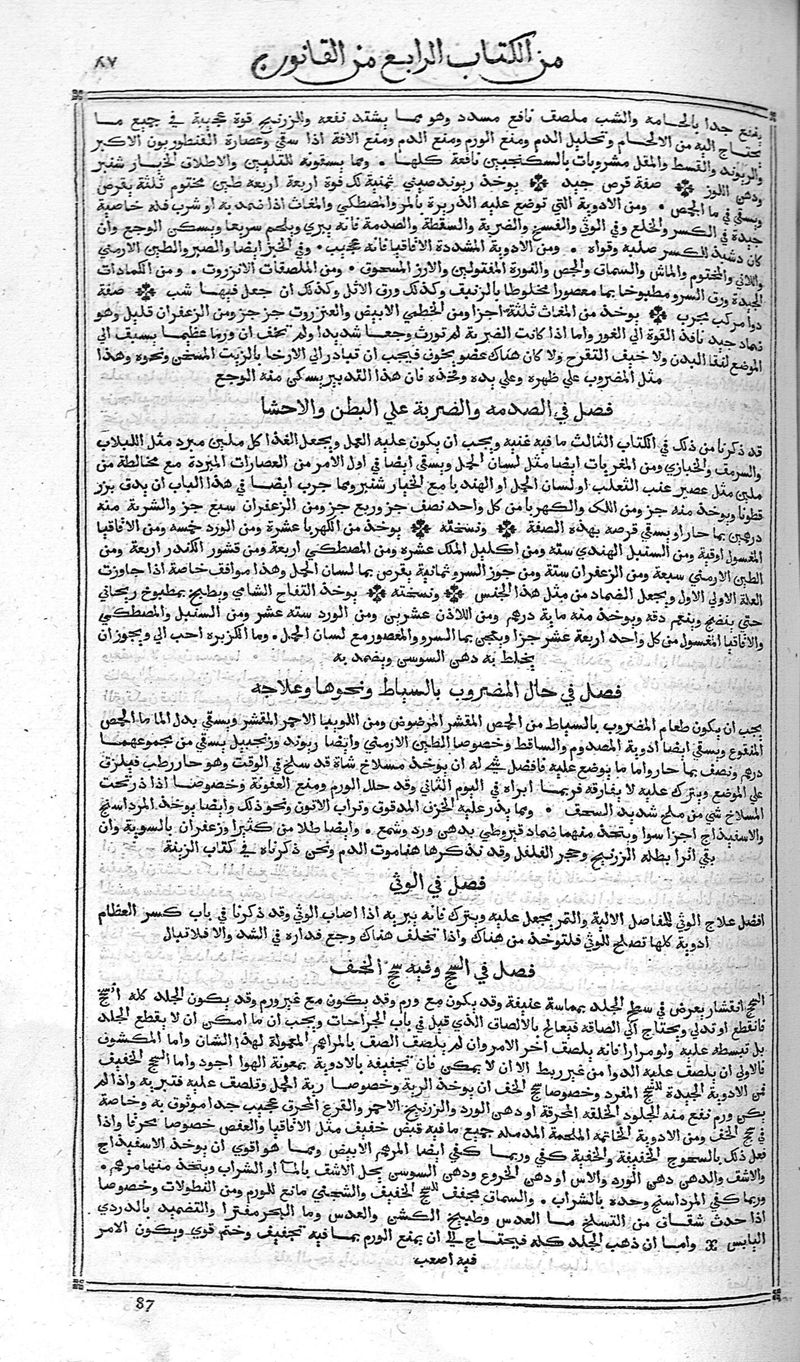 من الكتاب الرابع من القانون ٨٧
ينفع جدا بالحامه والشب ملصف نافع مسدد وهو مما يشتد نفعه وللزرنيخ قوة عجيبة في جميع ما
يحتاج اليه من الالحام وتحليل الدم ومنع الورم ومنع الدم ومنع الافة اذا سقي وعصارة القنطوريون الاكبر
والريوند والقسط والمقل مشروبات بالسكنجبين نافعة كلها · ومما يسقونه للتليين والاطلاق الخيار شنبر
ودهن اللوز صفة قرص جيد يوخذ ريوندصيني ثمنية لك فوة اربعة اربعة طين مختوم ثلثة يقرص
ويسقي في ما الحمص · ومن الادوية التي توضع عليه الذريرة بالمر والمصطكي والمغاث اذا ضمد به او شرب فله خاصية
جيدة في الكسر والخلع وفي الوثي والفسخ والضربة والسقطة والصدمة فانه يبري ويلحم سريعا ويسكن الوجع وان
كان دشيد للكسر صلبه وقواه · ومن الادوية المشددة الاقاقيا فانه عجيب · وفي الخبز ايضا والصبر والطين الارمني
واللاني والمختوم والماش والسماق والجص والنورة المغتولين والارز المسحوق · ومن الملصقات الانزروت · ومن الكمادات
الجيدة ورق السرو مطبوخا بما معصورا مخلوطا بالزنيف وكذلك ورق الاثل وكذلك ان جعل فيهما شب صفة
دوا مركب مجرب يوخذ من المغاث ثلثة اجزا ومن الخطمي الابيض والعنزروت جز جز ومن الزعفران قليل وهو
ضماد جيد نافذ القوة الي الغور واما اذا كانت الضربة لم تورث وجعا شديدا ولم تخف ان ورما عظيما يسبف الي
الموضع لنقا البدن ولا خيف التقرح ولا كان هناك عضو يخوف فيجب ان تبادر الي الارخا بالزيت المسخن ونحوه وهذا
مثل المضروب علي ظهره وعلي يده وفخذه فان هذا التدبير يسكن منه الوجع
فصل في الصدمه والضربة علي البطن والاحشا
قد ذكرنا من ذلك في الكتاب الثالث ما فيه غنيه ويجب ان يكون عليه العمل ويجعل الغذا كل ملين مبرد مثل اللبلاب
والسرمف والخبازي ومن المغريات ايضا مثل لسان الحمل ويسقي ايضا في اول الامر من العصارات المبردة مع مخالطة من
ملين مثل عصير عنب الثعلب او لسان الحمل او الهندبا مع الخيار شنبر ومما جرب ايضا في هذا الباب ان يدق بزر
قطونا ويوخذ منه جز ومن اللك والكهربا من كل واحد نصف جز وربع جز ومن الزعفران سبع جز والشربة منه
درهمين بما حار او يسقي قرصه بهذه الصفة ونسخته يوخذ من الكهربا عشرة ومن الورد خمسه ومن الاقاقيا
المغسول اوقية ومن السنبل الهندي سته ومن اكليل الملك عشره ومن المصطكي اربعة ومن قشور الكندر اربعة ومن
الطين الارمني سبعة ومن الزعفران ستة ومن جوز السرو ثمانية يقرص بما لسان الحمل وهذا موافف خاصة اذا جاوزت
العلة الاولي الاول ويجعل الضماد من مثل هذا الجنس ونسخته يوخذ التفاح الشامي ويطبخ بمطبوخ ريحاني
حتي ينضج وينعم دقه ويوخذ منه ماية درهم ومن اللاذن عشرين ومن الورد سته عشر ومن السنبل والمصطكي
والاقاقيا المغسول من كل واحد اربعة عشر جزا ويعجن بما السرو والمعصور مع لسان الحمل · وما الكزبره احب الي ويجوز ان
يخلط به دهن السوسن ويضمد به
فصل في حال المضروب بالسياط ونحوها وعلاجه
يجب ان يكون طعام المضروب بالسياط من الحمص المقشر المرضوض ومن اللوبيا الاحمر المقشر ويسقي بدل الما ما الحمص
المنقوع ويسقي ايضا ادوية المصدوم والساقط وخصوصا الطين الارمني وايضا ريوند وزنجبيل يسقي من مجموعهما
درهم ونصف بما حار واما ما يوضع عليه فافضل شي له ان يوخذ مسلاخ شاة قد سلخ في الوقت وهو حار رطب فيلزق
علي الموضع ويترك عليه لا يفارقه فربما ابراه في اليوم الثاني وقد حلل الورم ومنع العفونة وخصوصا اذا ذر تحت
المسلاخ شي من ملح شديد السحف · ومما يذر عليه الخزف المدقوق وتراب الاتون ونحو ذلك وايضا يوخذ المرداسنج
والاسفيذاج اجزا سوا ويتخذ منهما ضماد قيروطي بدهن ورد وشمع · وايضا طلا من كثيرا وزعفران بالسوية وان
بقي اثرا يطله الزرنيخ وحجر الفلفل وقد نذكرها هنا موت الدم ونحن ذكرناه في كتاب الزينة
فصل في الوثي
افضل علاج الوثي للمفاصل الالية والتمر يجعل عليه ويترك فانه يبريه اذا اصاب الوثي وقد ذكرنا في باب كسر العظام
ادوية كلها تصلح للوثي فلتوخذ من هناك واذا تخلف هناك وجع فداره في الشد والا فلا تبال
فصل في السحج وفيه سحج الخف
السحج انقشار يعرض في سطح الجلد بمماسة عنيفة وقد يكون مع ورم وقد يكون مع غير ورم وقد يكون الجلد كله انسحج
فانقطع او تدلي ويحتاج الي الصاقه فيعالج بالالصاق الذي قيل في باب الجراحات ويجب ان ما امكن ان لا يقطع الجلد
بل تبسطه عليه ولو مرارا فانه يلصف اخر الامر وان لم يلصف الصف بالمراهم المعمولة لهذا الشان واما المكشوف
فالاولي ان يلصف عليه الدوا من غير ربط الا ان لا يمكن فان تجفيفه بالادوية بمعونة الهوا اجود واما السحج الخفيف
فمن الادوية الجيدة للسحج المفرد وخصوصا سحج الخف ان يوخذ الرية وخصوصا رية الحمل وتلصف عليه فتبريه واذا لم
يكن ورم نفع منه الجلود الخلقه المحرقة او دهن الورد والزرنيخ الاحمر والقرع المحرق عجيب جدا موثوق به وخاصة
في سحج الخف ومن الادوية الخاتمة الملحمة المدمله جميع ما فيه قبض خفيف مثل الاقاقيا والعفص خصوصا محرقا واذا
فعل ذلك بالسحوج الخفيفة والخفية كفي وربما كفي ايضا المرهم الابيض ومما هو اقوي ان يوخذ الاسفيذاج
والاشف والدهن دهن الورد والاس او دهن الخروع ودهن السوسن يحل الاشف بالما او الشراب ويتخذ منها مرهم ·
وربما كفي المرداسنج وحده بالشراب · والسماق مجفف للسحج الخفيف والشجني مانع للورم ومن النطولات وخصوصا
اذا حدث شقاف من التسلخ ما العدس وطبيخ الكشني والعدس وما البحر مفترا والتضميد بالدردي
اليابس واما ان ذهب الجلد كله فيحتاج الي ان يمنع الورم بما فيه تجفيف وختم قوي ويكون الامر
فيه اصعب
87